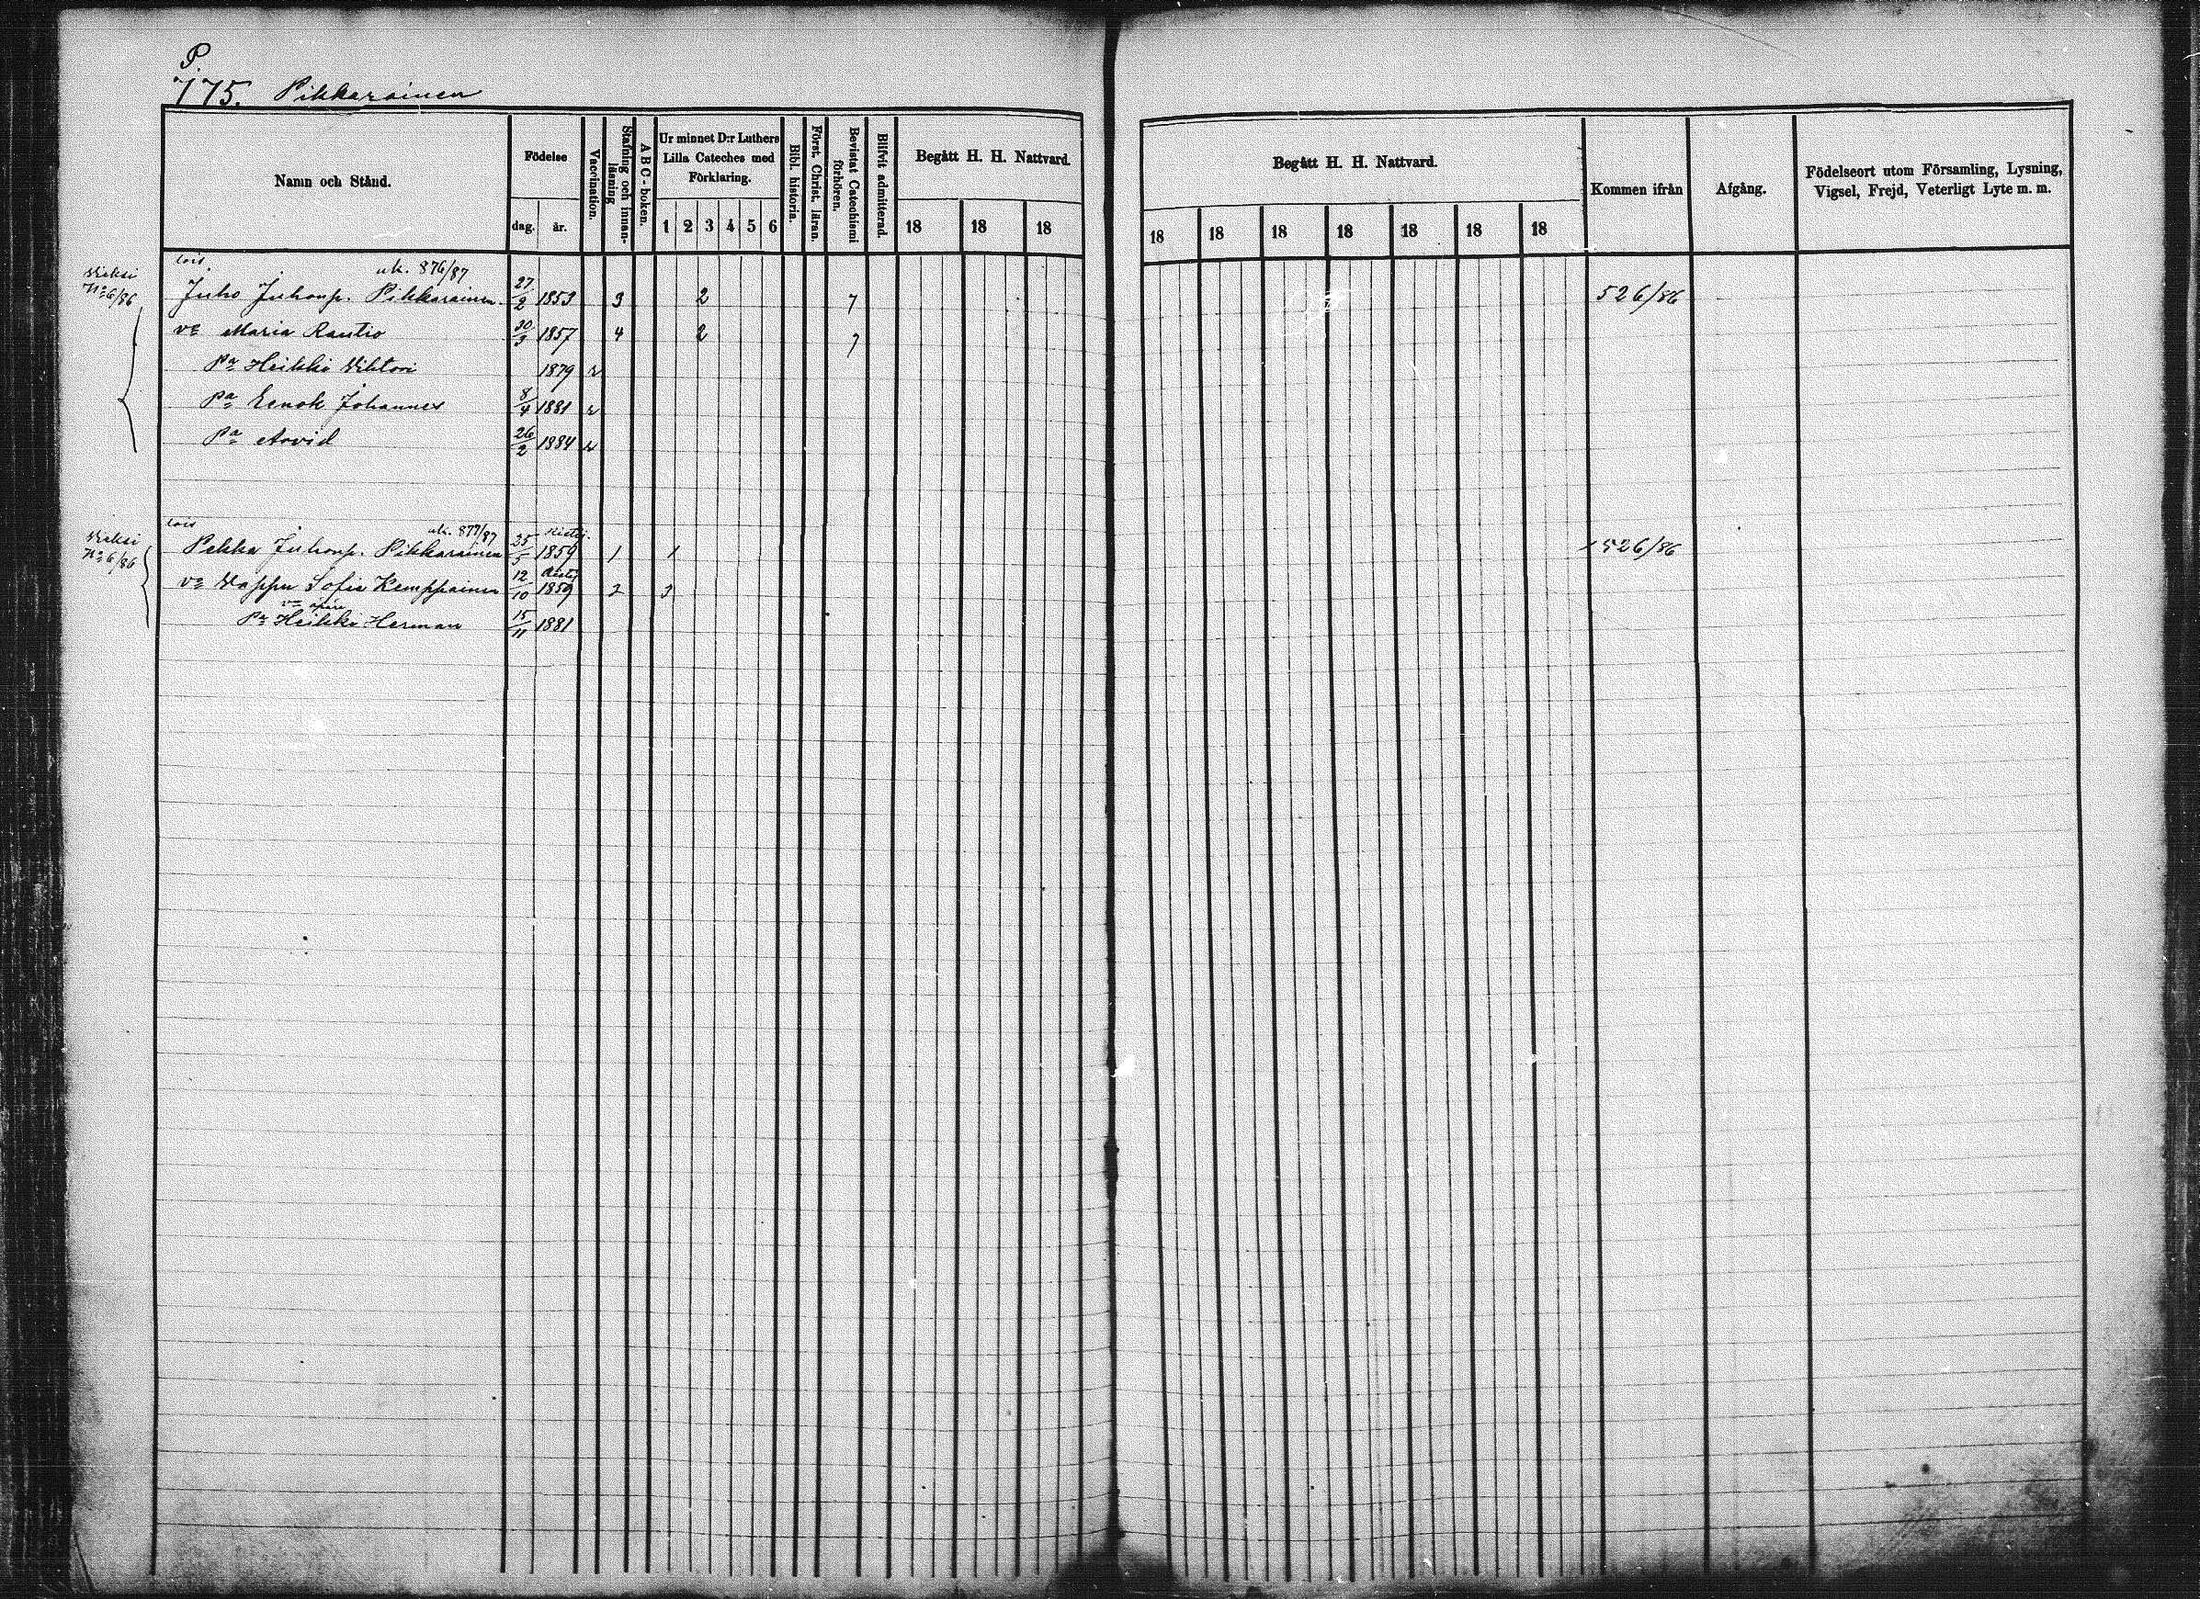 P.
775. Pikkarainen
Namn och Stånd.
Födelse
dag.
år.
Vaccination.
Stafning och innan-läsning
A B C-boken.
Ur minnet D:r Luthers Lilla Cateches med Förklaring.
1 2 3 4 5 6
Bibl. historia.
Först. Christ. läran.
Bevistat Catechismi förhören.
Blifvit admitterad.
Begått H. H. Nattvard.
18 18 18
Begått H. H. Nattvard.
18 18 18 18 18 18 18
Kommen ifrån
Afgång.
Födelseort utom Församling, Lysning, Vigsel, Frejd, Veterligt Lyte m. m.
lois uk. 876/87
No 6/86 Juho Juhonp. Pikkarainen 27/2 1853 3 2 7 526/86
va Maria Rautio 30/3 1857 4 2 7
Pa Heikki Viktori 1879 v
Pa Eenok Johannes 8/4 1881 v
Pa Arvid 26/2 1884 v
lois uk. 877/87
No 6/86 Pekka Juhonp. Pikkarainen 25/5 1859 1 1 526/86
va Wappu Sofia Kemppainen 12/10 1859 2 3
Pa Heikki Herman 15/11 1881